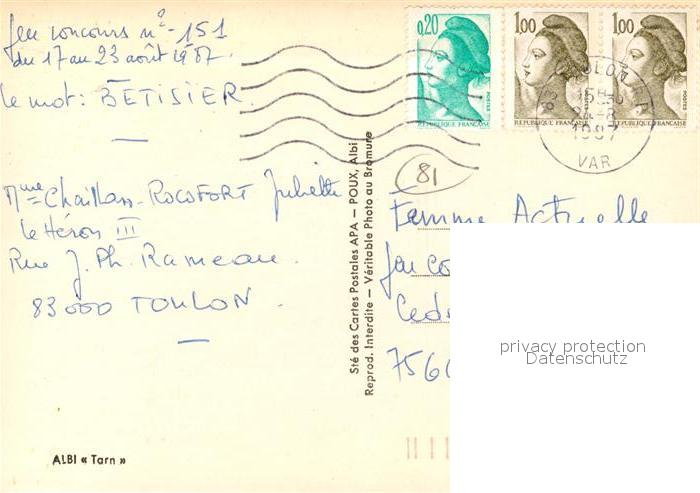 Jeu concours n° 151
du 17 au 23 août 1987.
le mot: BETISIER.
Mme Chaillan-ROCOFORT Juliette
le Héron III
Rue J. Ph. Rameau.
83000 TOULON.
ALBI « Tarn »
Sté des Cartes Postales APA — POUX, Albi
Reprod. Interdite — Véritable Photo au Bromure
0,20
POSTES
REPUBLIQUE FRANÇAISE
1,00
POSTES
REPUBLIQUE FRANÇAISE
1,00
POSTES
REPUBLIQUE FRANÇAISE
1987
VAR
81
Femme Actuelle
Jeu
privacy protection
Datenschutz